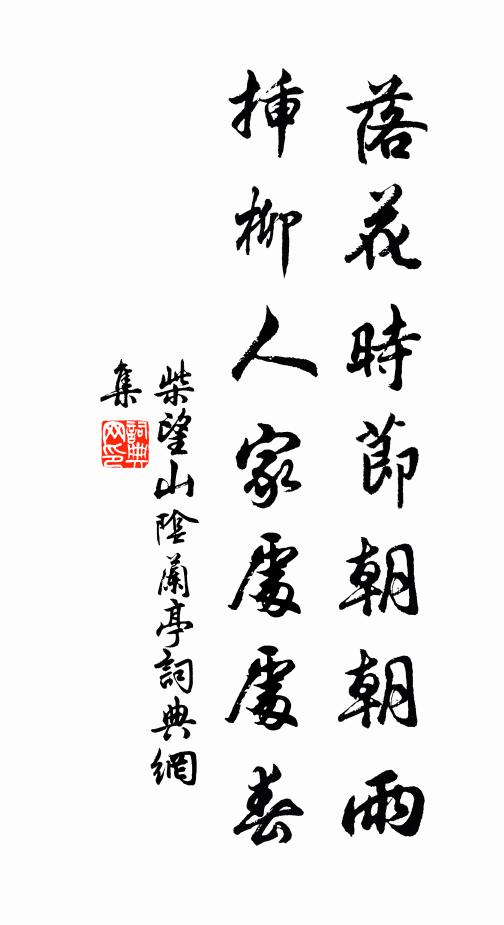 落花時節朝朝雨
插柳人家處處春
柴望山陰蘭亭詞典網
集
詞典
网印